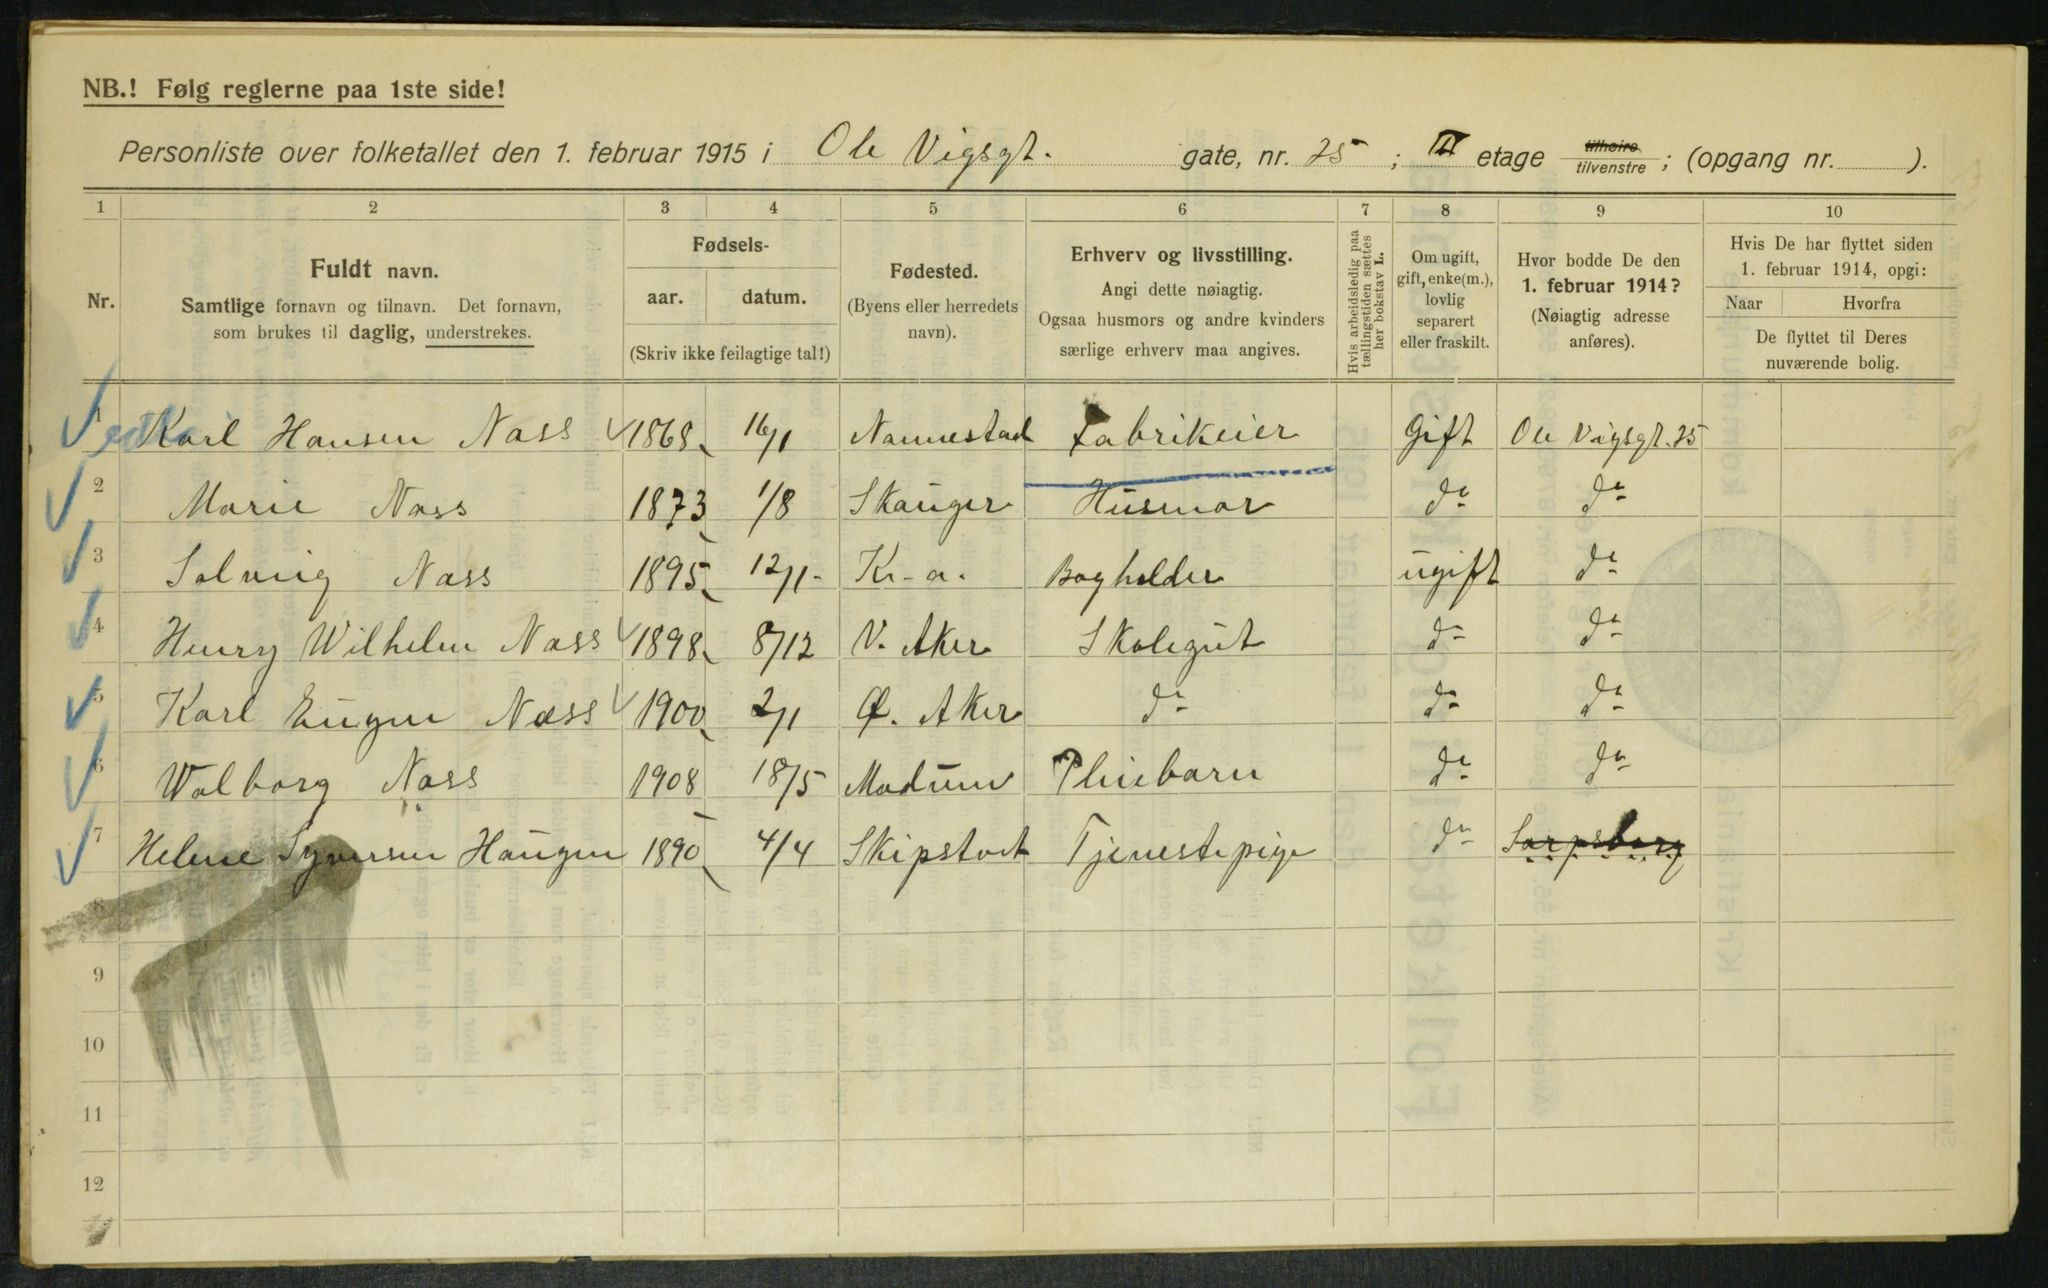 NB.! Følg reglerne paa 1ste side!
Personliste over folketallet den 1. februar 1915 i Ole Vigsgt. gate, nr. 25; etage tilhøire tilvenstre; (opgang nr. ).
1 2 3 4 5 6 7 8 9 10
Nr.
Fuldt navn.
Samtlige fornavn og tilnavn. Det fornavn,
som brukes til daglig, understrekes.
Fødsels-
aar. datum.
(Skriv ikke feilagtige tal!)
Fødested.
(Byens eller herredets
navn).
Erhverv og livsstilling.
Angi dette nøiagtig.
Ogsaa husmors og andre kvinders
særlige erhverv maa angives.
Hvis arbeidsledig paa
tællingstiden sættes
her bokstav L.
Om ugift,
gift, enke(m.),
lovlig
separert
eller fraskilt.
Hvor bodde De den
1. februar 1914?
(Nøiagtig adresse
anføres).
Hvis De har flyttet siden
1. februar 1914, opgi:
Naar Hvorfra
De flyttet til Deres
nuværende bolig.
1 Karl Hansen Næss 1868 16/1 Nannestad Fabrikeier Gift Ole Vigsgt. 25
2 Marie Næss 1873 1/8 Skauger Husmor do do
3 Solveig Næss 1895 12/1- Kr-a. Bogholder ugift do
4 Henry Wilhelm Næss 1898 8/12 V. Aker Skolegut do do
5 Karl Eugen Næss 1900 2/1 Ø. Aker do do do
6 Walborg Næss 1908 18/5 Modum Pleiebarn do do
7 Helene Syversen Haugen 1890 4/4 Skiptvet Tjenestepige do Sarpsborg
8
9
10
11
12